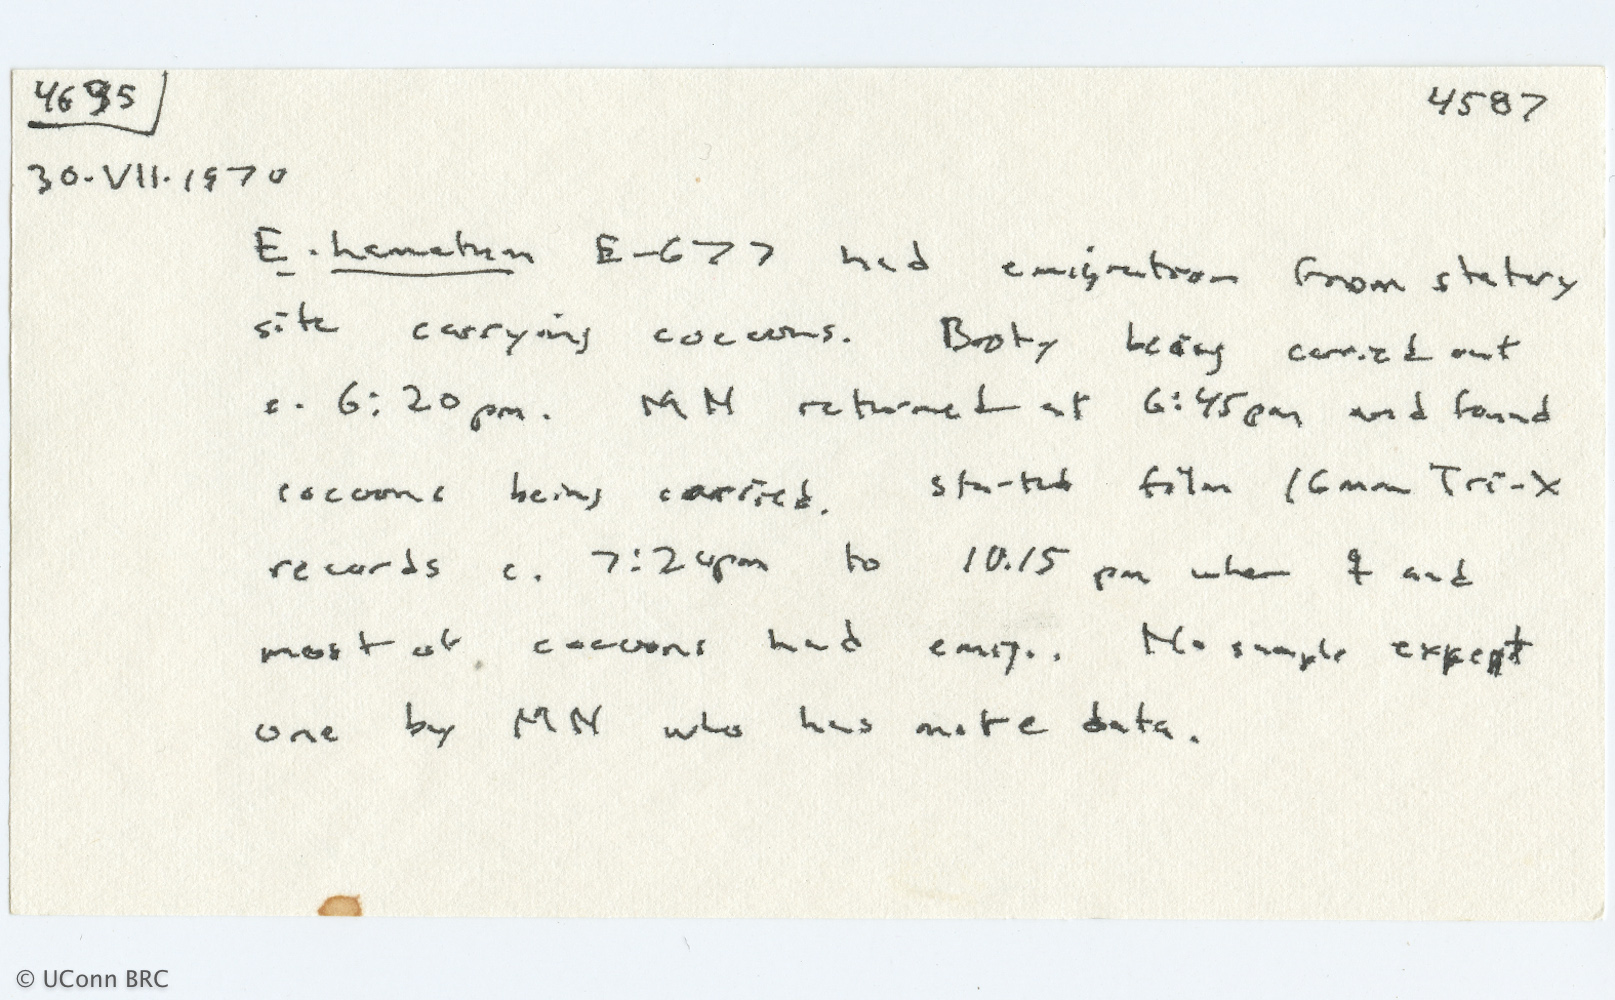 4695
4587
30.VII.1970
E. hamatum E-677 had emigration from statary
site carrying cocoons. Booty being carried out
c. 6:20pm. MN returned at 6:45pm and found
cocoons being carried. Started film 16mm Tri-X
records c. 7:20pm to 10:15 pm when ♀ and
most of cocoons had emig.. No sample except
one by MN who has more data.
© UConn BRC